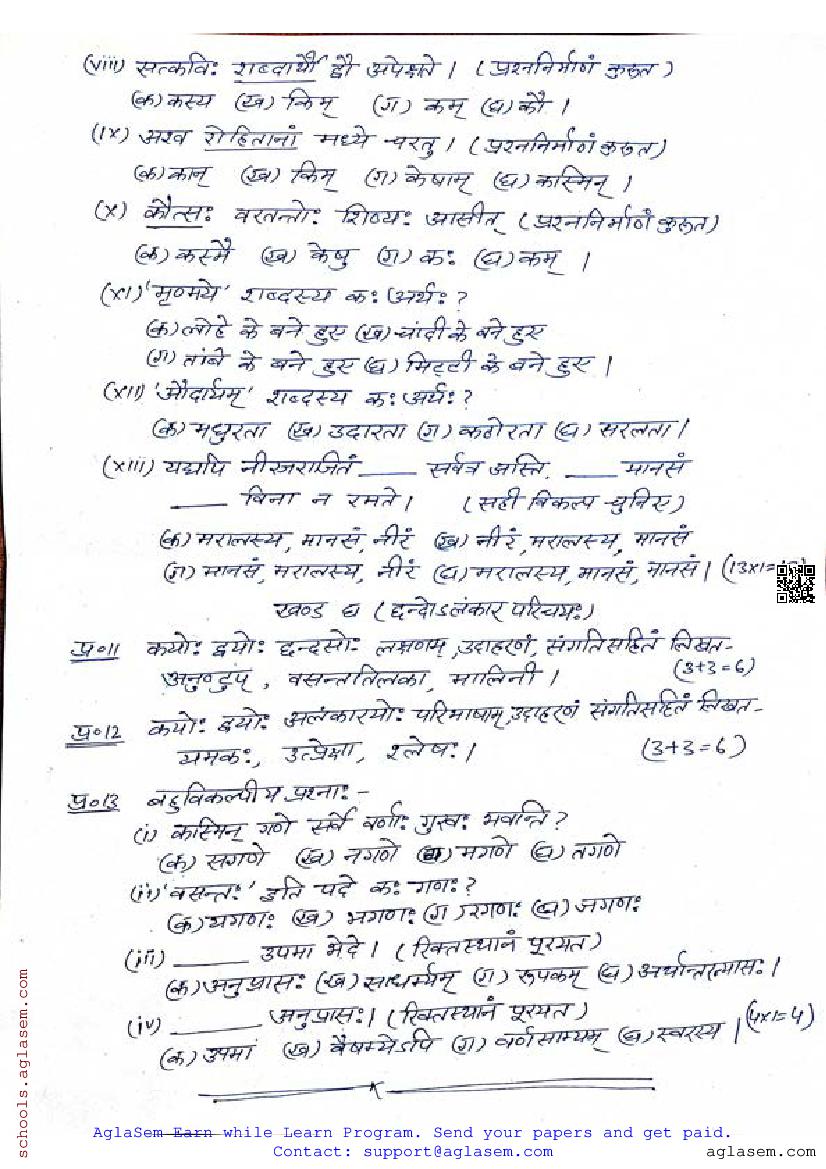 (viii) सत्कविः शब्दार्थौ द्वौ अपेक्षते । (प्रश्ननिर्माणं कुरूत)
(क) कस्य (ख) किम् (ग) कम् (घ) कौ ।
(ix) अश्व रोहितानां मध्ये चरतु । (प्रश्ननिर्माणं कुरूत)
(क) कान् (ख) किम् (ग) केषाम् (घ) कस्मिन् ।
(x) कौत्सः वरतन्तोः शिष्यः आसीत् (प्रश्ननिर्माणं कुरूत)
(क) कस्मै (ख) केषु (ग) कः (घ) कम् ।
(xi) 'मृण्मये' शब्दस्य कः अर्थः ?
(क) लोहे के बने हुए (ख) चांदी के बने हुए
(ग) तांबे के बने हुए (घ) मिट्टी के बने हुए ।
(xii) 'औदार्यम्' शब्दस्य कः अर्थः ?
(क) मधुरता (ख) उदारता (ग) कठोरता (घ) सरलता ।
(xiii) यद्यपि नीरजराजितं ____ सर्वत्र अस्ति, ____ मानसं
____ विना न रमते । (सही विकल्प चुनिए)
(क) मरालस्य, मानसं, नीरं (ख) नीरं, मरालस्य, मानसं
(ग) मानसं, मरालस्य, नीरं (घ) मरालस्य, मानसं, मानसं । (13x1=
खण्ड घ (छन्दोऽलंकार परिचयः)
प्र०11 कयोः द्वयोः छन्दसोः लक्षणम्, उदाहरणं, संगतिसहितं लिखत-
अनुष्टुप्, वसन्ततिलका, मालिनी । (3+3=6)
प्र०12 कयोः द्वयोः अलंकारयोः परिभाषाम्, उदाहरणं संगतिसहितं लिखत-
यमकः, उत्प्रेक्षा, श्लेषः । (3+3=6)
प्र०13 बहुविकल्पीय प्रश्नाः -
(i) कस्मिन् गणे सर्वे वर्णाः गुरुवः भवन्ति ?
(क) सगणे (ख) नगणे (ग) मगणे (घ) तगणे
(ii) 'वसन्तः' इति पदे कः गणः ?
(क) यगणः (ख) भगणः (ग) रगणः (घ) जगणः
(iii) ____ उपमा भेदे । (रिक्तस्थानं पूरयत)
(क) अनुप्रासः (ख) साधर्म्यम् (ग) रूपकम् (घ) अर्थान्तरन्यासः ।
(iv) ____ अनुप्रासः । (रिक्तस्थानं पूरयत)
(क) उपमां (ख) वैषम्येऽपि (ग) वर्णसाम्यम् (घ) स्वरस्य । (4x1=4)
schools.aglasem.com
AglaSem Earn while Learn Program. Send your papers and get paid.
Contact: support@aglasem.com
aglasem.com